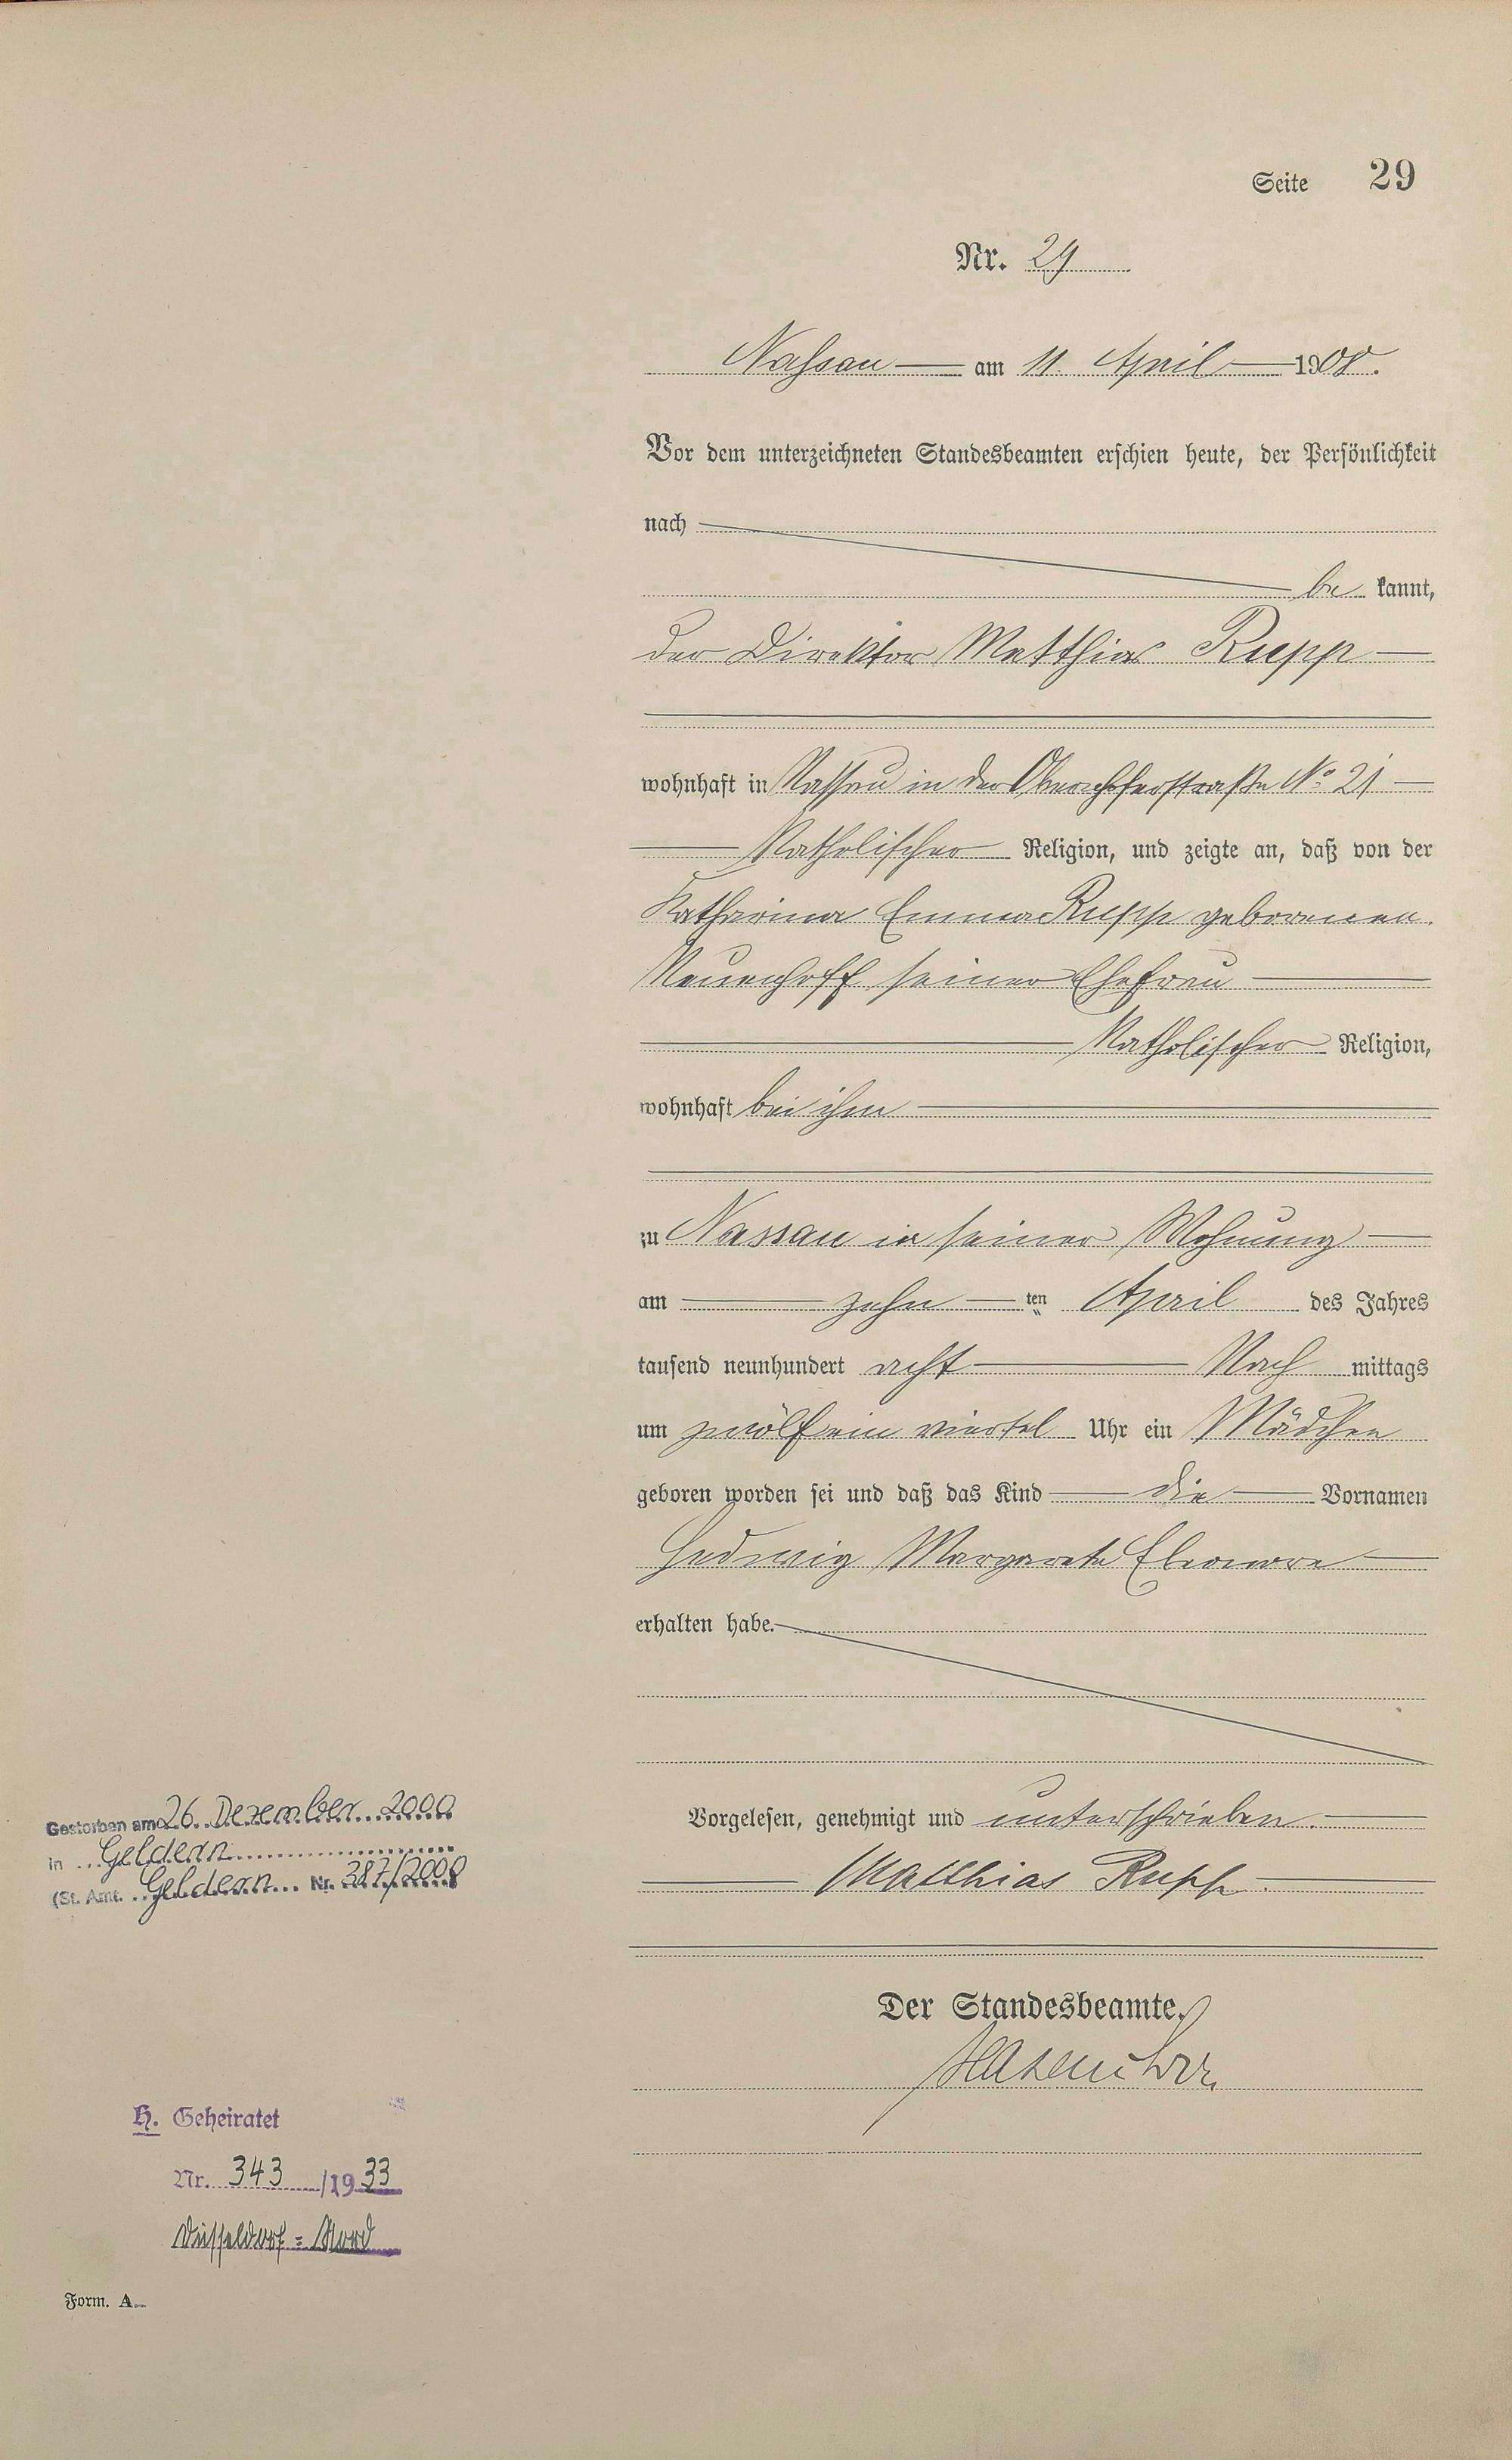 Seite 29
Nr. 29
Nassau am 11. April 1908.
Vor dem unterzeichneten Standesbeamten erschien heute, der Persönlichkeit
nach
be kannt,
der Direktor Matthias Rupp
wohnhaft in Nassau in der Obernhoferstraße No. 21
Katholischer Religion, und zeigte an, daß von der
Katharina Emma Rupp geborenen
Neuenhoff seiner Ehefrau
Katholischer Religion,
wohnhaft bei ihm
zu Nassau in seiner Wohnung
am zehn ten April des Jahres
tausend neunhundert acht Nach mittags
um zwölf ein viertel Uhr ein Mädchen
geboren worden sei und daß das Kind die Vornamen
Hedwig Margarete Eleonore
erhalten habe.
Vorgelesen, genehmigt und unterschrieben.
Matthias Rupp.
Der Standesbeamte.
Gestorben am 26. Dezember 2000
in Geldern
(St. Amt. Geldern Nr. 387/2000
H. Geheiratet
Nr. 343 /1933
Düsseldorf=Nord
Form. A.